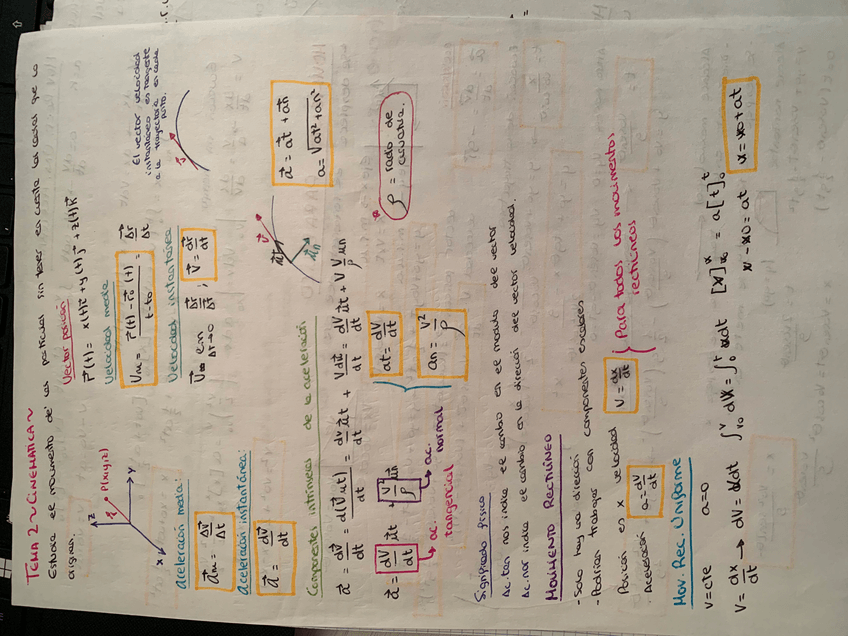 TEMA 2 ~ CINEMÁTICA ~
Estudia el movimiento de las partículas sin tener en cuenta las causas que lo
originan.
Z
Y
X
P(x,y,z)
Vector posición
r(t) = x(t)i + y(t)j + z(t)k
Velocidad media
Vm = r(t) - r0(t) / t - t0 = Δr / Δt
Velocidad instantánea
Δr / Δt ; V = dr / dt
Δt→0
El vector velocidad
instantáneo es tangente
a la trayectoria
en cada
punto.
Aceleración media:
am = ΔV / Δt
Aceleración instantánea:
a = dV / dt
Componentes intrínsecas de la aceleración
a = dV / dt = d(V ut) / dt = dv / dt ut + V dut / dt = dV / dt ut + V V / ρ un
a = dV / dt ut + V² / ρ un
→ ac. tangencial
→ ac. normal
at = dV / dt
an = V² / ρ
v
ut
un
a = at + an
a = √at² + an²
* ρ = radio de
curvatura.
Significado físico
Ac. tan nos indica el cambio en el modulo del vector
Ac. nor indica el cambio en la dirección del vector velocidad.
MOVIMIENTO RECTILÍNEO
- Solo hay una dirección
- Podrían trabajar con componentes escalares
Posición es x velocidad V = dx / dt
· Aceleración a = dV / dt
} Para todos los movimientos
rectilíneos
Mov. Rec. Uniforme
v = cte a = 0
V = dx / dt → dV = dt ∫ = ∫ dt [x] = a[t]
x - x0 = at x = x0 + at